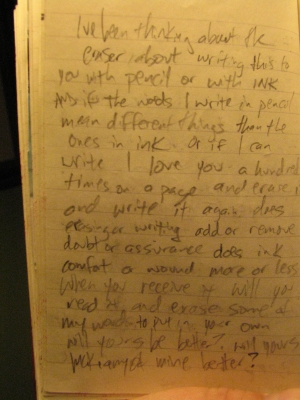 I've been thinking about the
eraser, about writing this to
you with pencil or with INK
And if the words I write in pencil
mean different things than the
ones in ink. Or if I can
write I love you a hundred
times on a page and erase it
and write it again does
erasing or writing add or remove
doubt or assurance does ink
comfort a wound more or less
When you receive it will you
read it, and erase some of
my words to put in your own
will yours be better? will yours
make mine better?